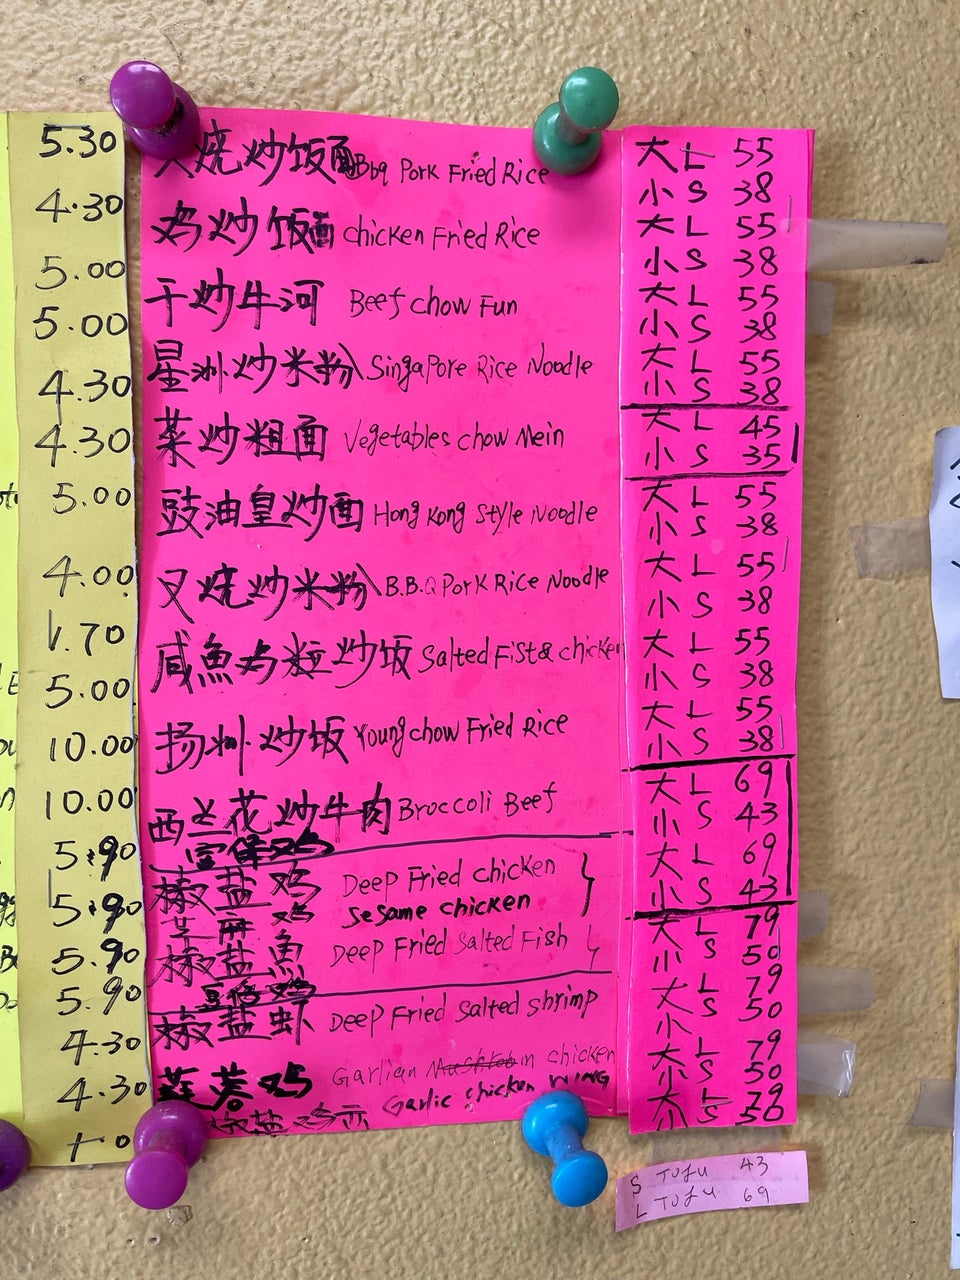 5.30
4.30
5.00
5.00
4.30
4.30
5.00
4.00
1.70
5.00
10.00
10.00
5.90
5.90
5.90
5.90
4.30
4.30
烧炒饭面 Bbq Pork Fried Rice
鸡炒饭面 chicken Fried Rice
干炒牛河 Beef chow Fun
星洲炒米粉 Singapore Rice Noodle
菜炒粗面 Vegetables chow Mein
豉油皇炒面 Hong Kong Style Noodle
叉烧炒米粉 B.B.Q Pork Rice Noodle
咸魚鸡粒炒饭 Salted Fist & chicken
扬州炒饭 Young chow Fried Rice
西兰花炒牛肉 Broccoli Beef
宫保鸡
椒盐鸡 Deep Fried chicken
芝麻鸡 Sesame chicken
椒盐魚 Deep Fried Salted Fish
豆豉鸡
椒盐虾 Deep Fried Salted Shrimp
鸡 Garlian chicken
椒盐鸡 Garlic chicken WING
大 L 55
小 S 38
大 L 55
小 S 38
大 L 55
小 S 38
大 L 55
小 S 38
大 L 45
小 S 35
大 L 55
小 S 38
大 L 55
小 S 38
大 L 55
小 S 38
大 L 55
小 S 38
大 L 69
小 S 43
大 L 69
小 S 43
大 L 79
小 S 50
大 L 79
小 S 50
大 L 79
小 S 50
大 L 79
小 S 50
S TOFU 43
L TOFU 69